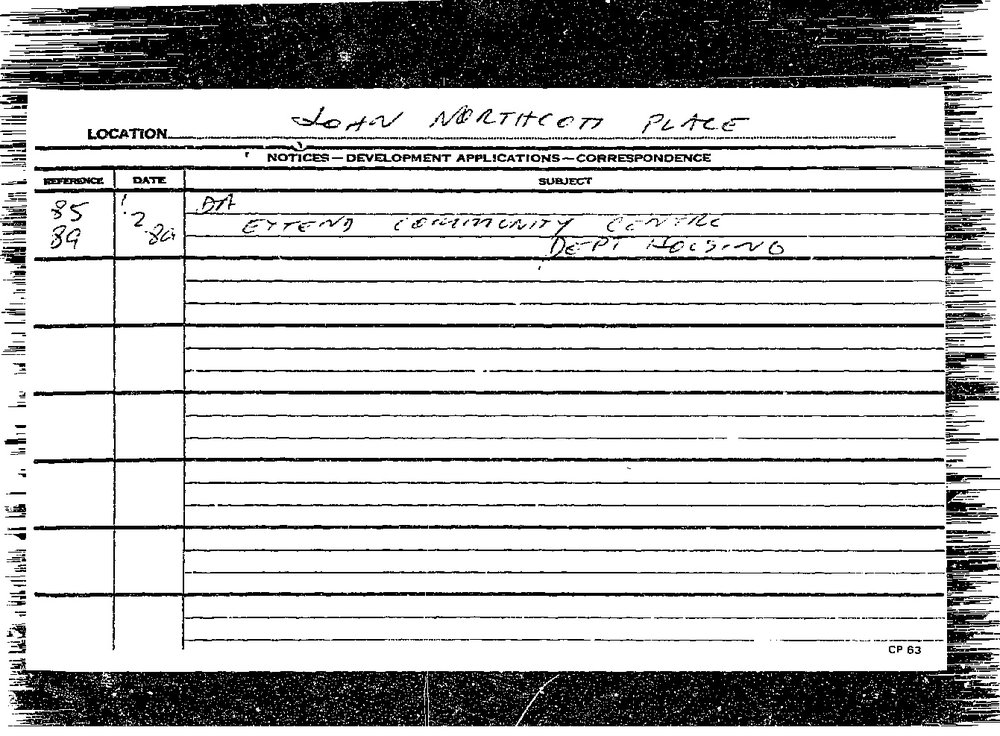 LOCATION JOHN NORTHCOTT PLACE
NOTICES—DEVELOPMENT APPLICATIONS—CORRESPONDENCE
REFERENCE DATE SUBJECT
85 DA
89 2.89 EXTEND COMMUNITY CENTRE
DEPT HOUSING
CP 63